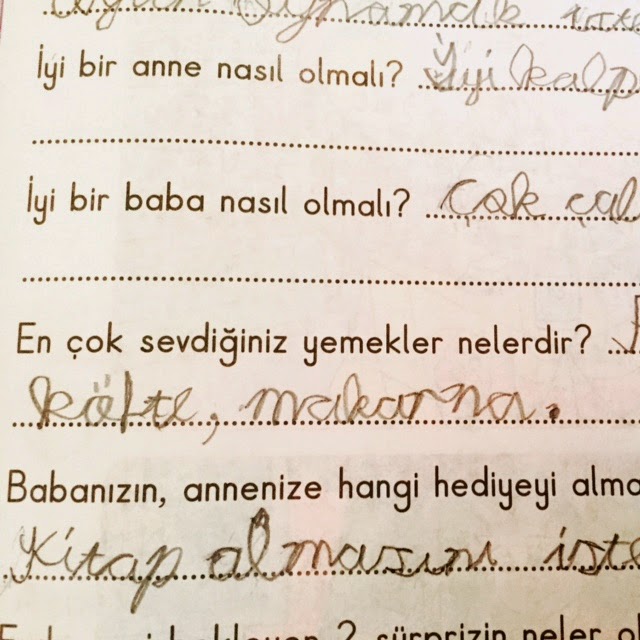 Oynamak iste
İyi bir anne nasıl olmalı? İyi kalp
İyi bir baba nasıl olmalı? Çok çal
En çok sevdiğiniz yemekler nelerdir?
köfte, makarna.
Babanızın, annenize hangi hediyeyi alma
Kitap almasını iste
2 sürprizin neler ol